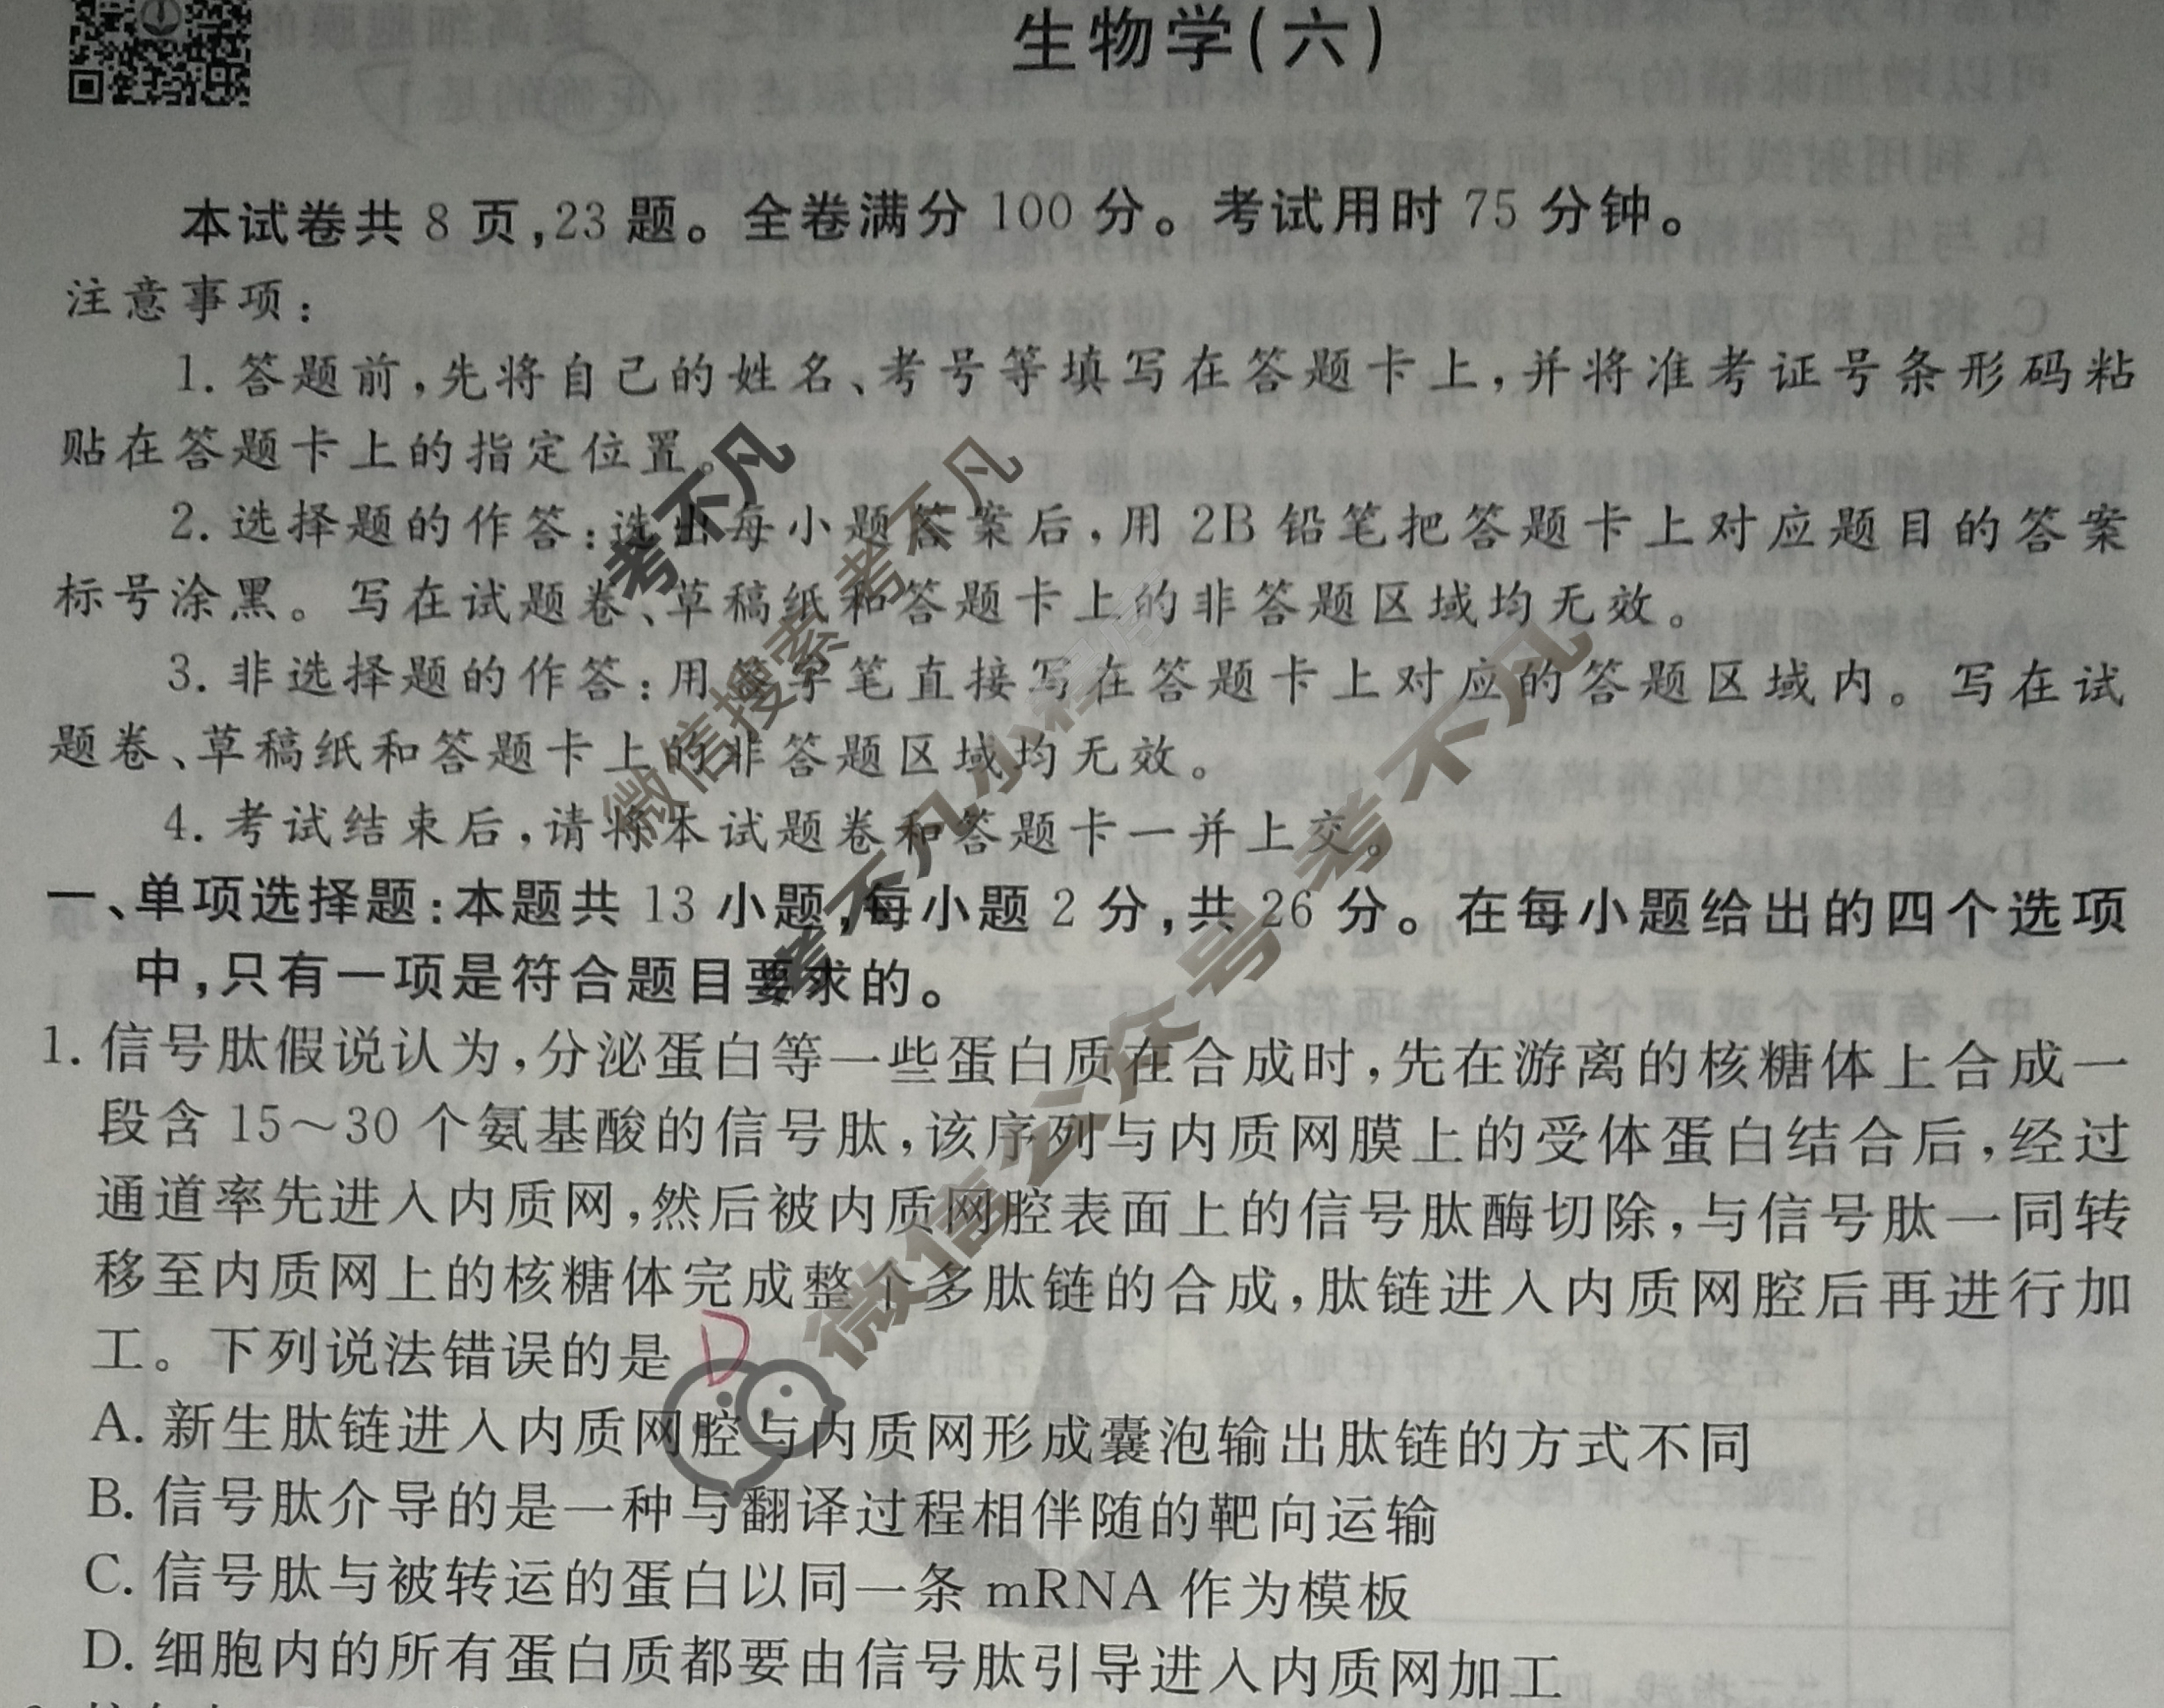 生物学(六)
本试卷共 8 页,23 题。全卷满分 100 分。考试用时 75 分钟。
注意事项:
1. 答题前,先将自己的姓名、考号等填写在答题卡上,并将准考证号条形码粘
贴在答题卡上的指定位置。
2. 选择题的作答:选出每小题答案后,用 2B 铅笔把答题卡上对应题目的答案
标号涂黑。写在试题卷、草稿纸和答题卡上的非答题区域均无效。
3. 非选择题的作答:用签字笔直接写在答题卡上对应的答题区域内。写在试
题卷、草稿纸和答题卡上的非答题区域均无效。
4. 考试结束后,请将本试题卷和答题卡一并上交。
一、单项选择题:本题共 13 小题,每小题 2 分,共 26 分。在每小题给出的四个选项
中,只有一项是符合题目要求的。
1. 信号肽假说认为,分泌蛋白等一些蛋白质在合成时,先在游离的核糖体上合成一
段含 15~30 个氨基酸的信号肽,该序列与内质网膜上的受体蛋白结合后,经过
通道率先进入内质网,然后被内质网腔表面上的信号肽酶切除,与信号肽一同转
移至内质网上的核糖体完成整个多肽链的合成,肽链进入内质网腔后再进行加
工。下列说法错误的是 D
A. 新生肽链进入内质网腔与内质网形成囊泡输出肽链的方式不同
B. 信号肽介导的是一种与翻译过程相伴随的靶向运输
C. 信号肽与被转运的蛋白以同一条 mRNA 作为模板
D. 细胞内的所有蛋白质都要由信号肽引导进入内质网加工
考不凡
考不凡
微信搜索
考不凡小程序
微信公众号 考不凡